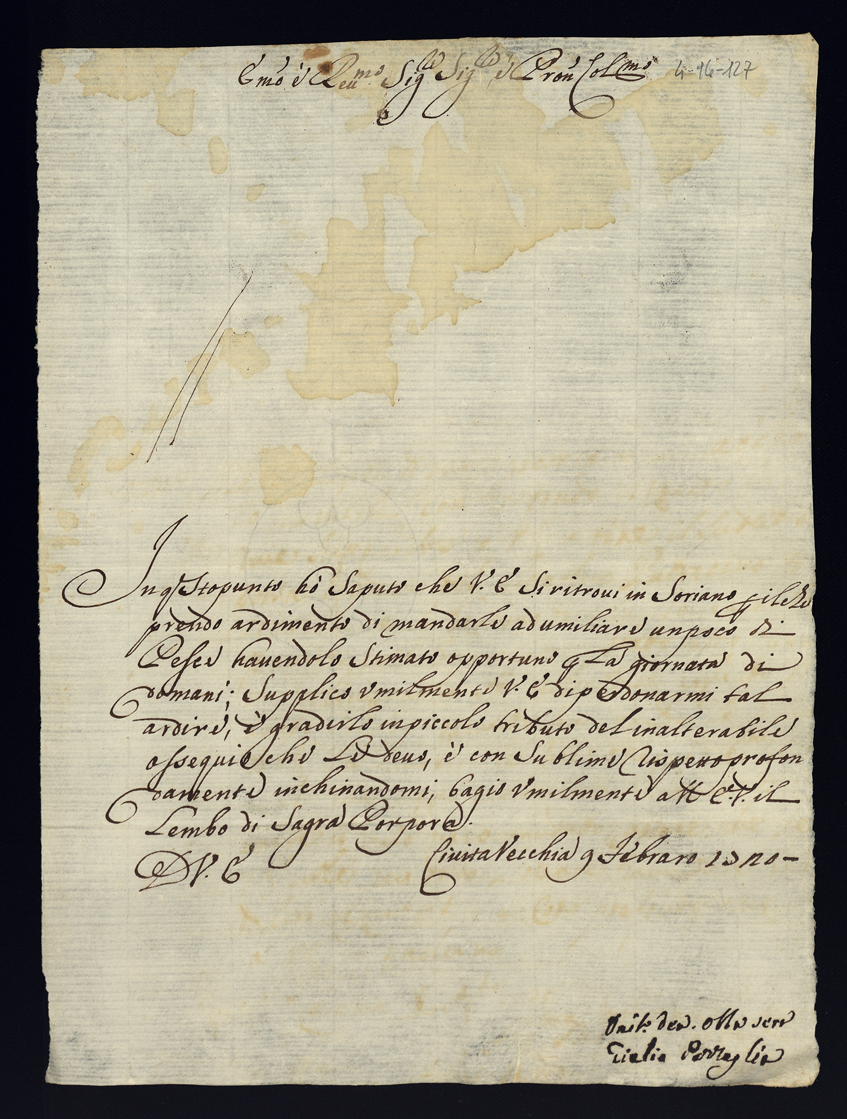 Emo è Reumo Sigre Sigre è Pron Colmo
4-96-127
In qsto punto hò Saputo che V. E. Si ritroui in Soriano
prendo ardimento di mandarle ad umiliare un poco di
Pesce hauendolo Stimato opportuno p La giornata di
domani; Supplico vmilmente V. E. di perdonarmi tal
ardire, è gradirlo in piccolo tributo del inalterabile
ossequio che Le deuo, è con Sublime Rispetto profon
damente inchinandomi, bagio vmilmente all E. V. il
Lembo di Sagra Porpora.
D V. E. Ciuita Vecchia 9 Febraro